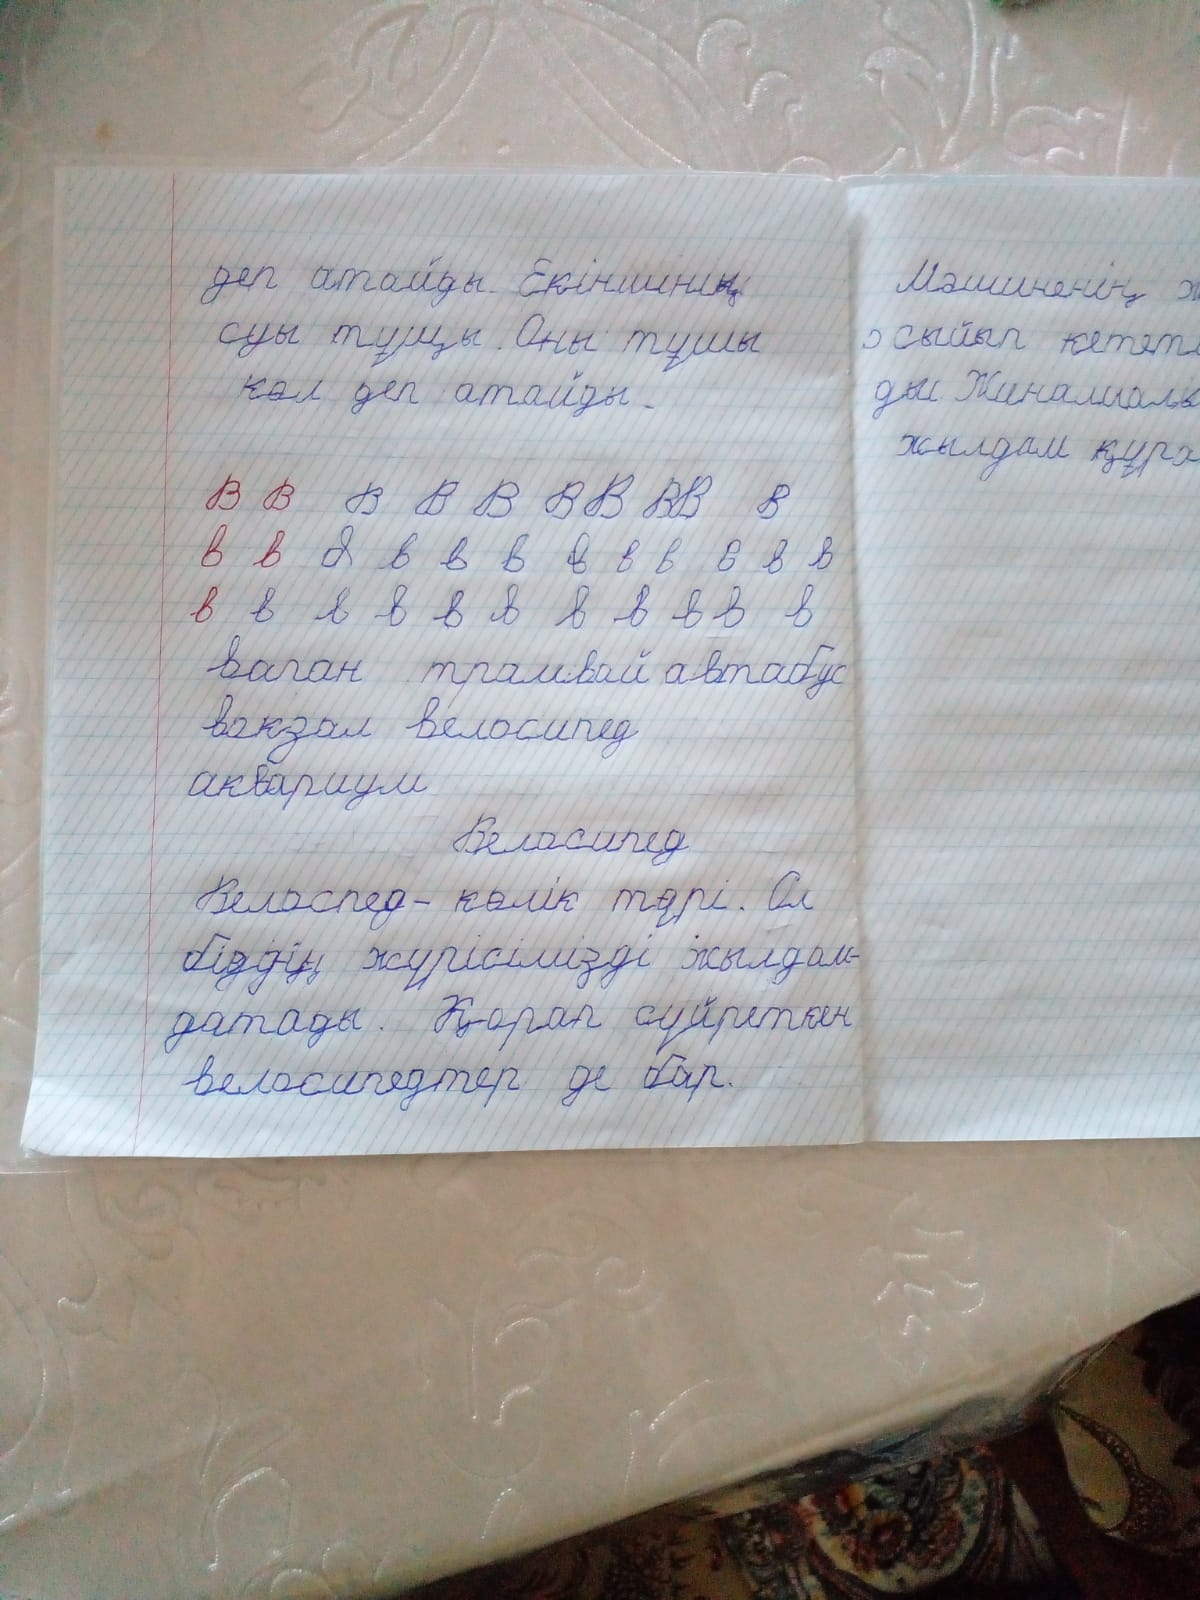 деп атайды. Екіншинің
суы тұщы. Оны тұшы
көл деп атайды.
В В В В В В В В В в
в в д в в в в в в в в в
в в в в в в в в в в в
ваган трамвай автабус
вокзал велосипед
аквариум
Велосипед
Велоспед - көлік төрі. Ол
біздің жүрісімізді жылдам-
датады. Қорап сүйреткен
велосипедтер де бар.
Мәшиненің ж
сыйып кетет
ды. Жиналмалы
жылдам құра